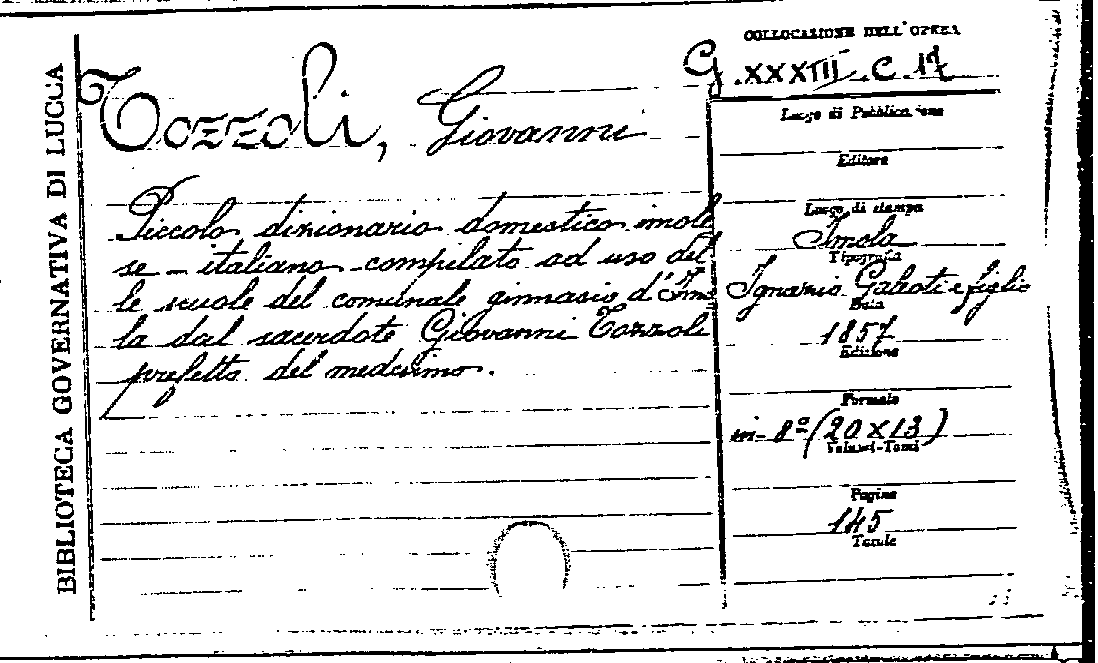 BIBLIOTECA GOVERNATIVA DI LUCCA
Tozzoli, Giovanni
Piccolo dizionario domestico imole
se - italiano compilato ad uso del
le scuole del comunale ginnasio d'Imo
la dal sacerdote Giovanni Tozzoli
prefetto del medesimo.
COLLOCAZIONE DELL'OPERA
G. XXXIII. C. 17
Luogo di Pubblicazione
Editore
Luogo di stampa
Imola
Tipografia
Ignazio Galeati e figlio
Data
1857
Edizione
Formato
in-8º (20 x 13)
Volumi-Tomi
Pagine
145
Tavole